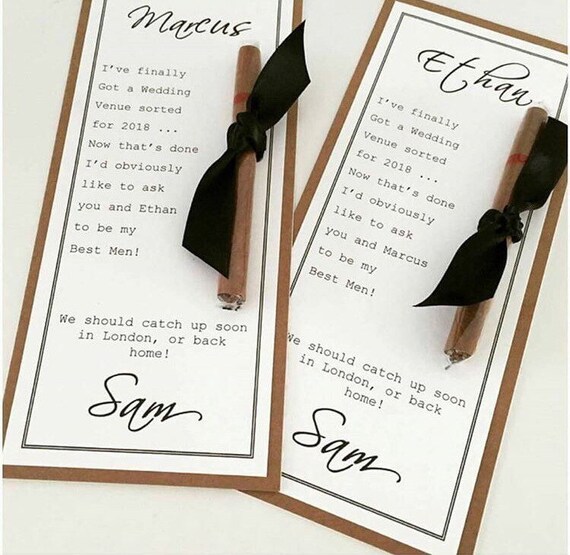 Marcus
I've finally
Got a Wedding
Venue sorted
for 2018 ...
Now that's done
I'd obviously
like to ask
you and Ethan
to be my
Best Men!
We should catch up soon
in London, or back
home!
Sam
Ethan
I've finally
Got a Wedding
Venue sorted
for 2018 ...
Now that's done
I'd obviously
like to ask
you and Marcus
to be my
Best Men!
We should catch up soon
in London, or back
home!
Sam